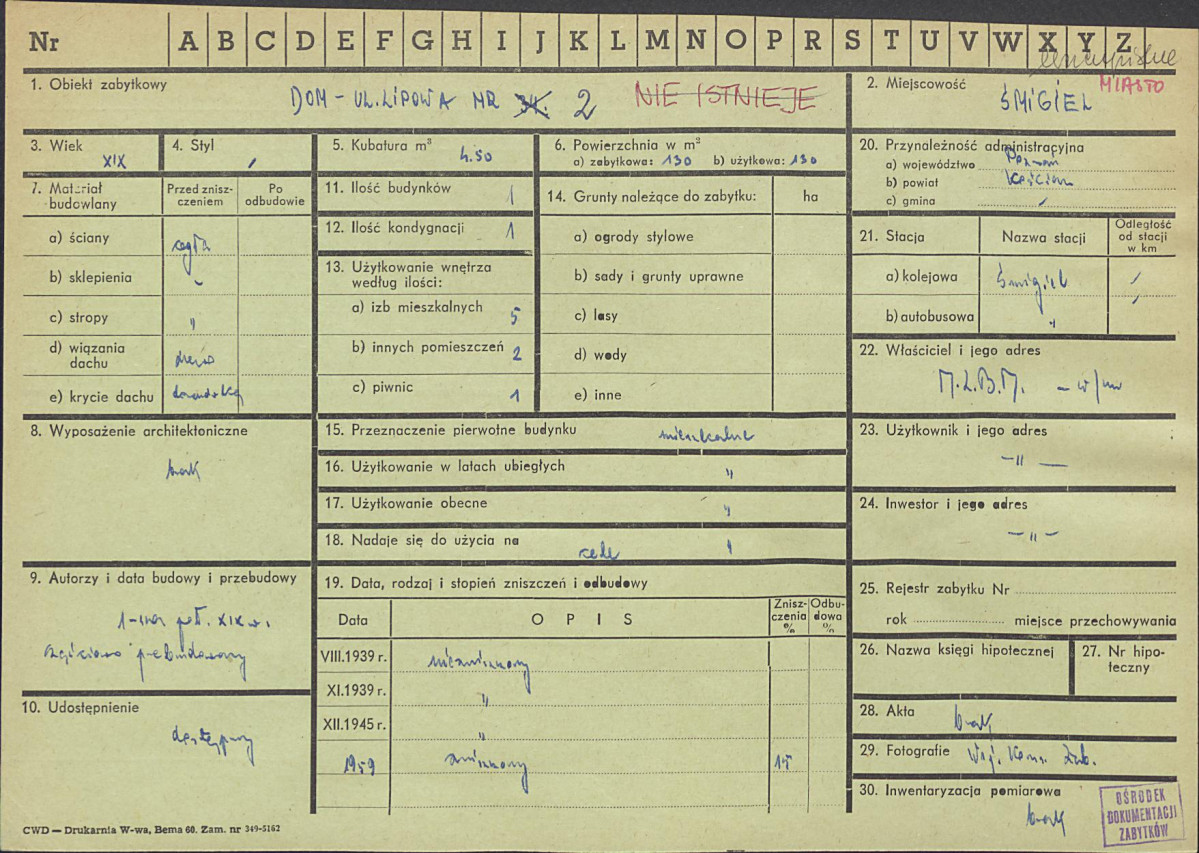 Nr A B C D E F G H I J K L M N O P R S T U V W X Y Z
1. Obiekt zabytkowy
DOM - UL. LIPOWA NR 34. 2 NIE ISTNIEJE
2. Miejscowość
MIASTO
ŚMIGIEL
3. Wiek
XIX
4. Styl
5. Kubatura m³
4.50
6. Powierzchnia w m²
a) zabytkowa: 130 b) użytkowa: 130
20. Przynależność administracyjna
a) województwo Poznań
b) powiat Kościan
c) gmina
7. Materiał budowlany
Przed zniszczeniem
Po odbudowie
a) ściany cegła
b) sklepienia -
c) stropy "
d) wiązania dachu drewno
e) krycie dachu
11. Ilość budynków 1
12. Ilość kondygnacji 1
13. Użytkowanie wnętrza według ilości:
a) izb mieszkalnych 5
b) innych pomieszczeń 2
c) piwnic 1
14. Grunty należące do zabytku: ha
a) ogrody stylowe
b) sady i grunty uprawne
c) lasy
d) wody
e) inne
21. Stacja
Nazwa stacji
Odległość od stacji w km
a) kolejowa Śmigiel
b) autobusowa "
22. Właściciel i jego adres
M.Z.B.M. - w/m
8. Wyposażenie architektoniczne
brak
15. Przeznaczenie pierwotne budynku mieszkalne
16. Użytkowanie w latach ubiegłych "
17. Użytkowanie obecne "
18. Nadaje się do użycia na cele "
23. Użytkownik i jego adres
- " -
24. Inwestor i jego adres
- " -
9. Autorzy i data budowy i przebudowy
1-sza poł. XIX w.
częściowo przebudowany
19. Data, rodzaj i stopień zniszczeń i odbudowy
Data
OPIS
Zniszczenia %
Odbudowa %
VIII.1939 r. niezniszczony
XI.1939 r. "
XII.1945 r. "
1959 zniszczony 15
25. Rejestr zabytku Nr
rok miejsce przechowywania
26. Nazwa księgi hipotecznej
27. Nr hipoteczny
10. Udostępnienie
dostępny
28. Akta brak
29. Fotografie Woj. Kons. Zab.
30. Inwentaryzacja pomiarowa
brak
OŚRODEK
DOKUMENTACJI
ZABYTKÓW
CWD — Drukarnia W-wa, Bema 60. Zam. nr 349-5162